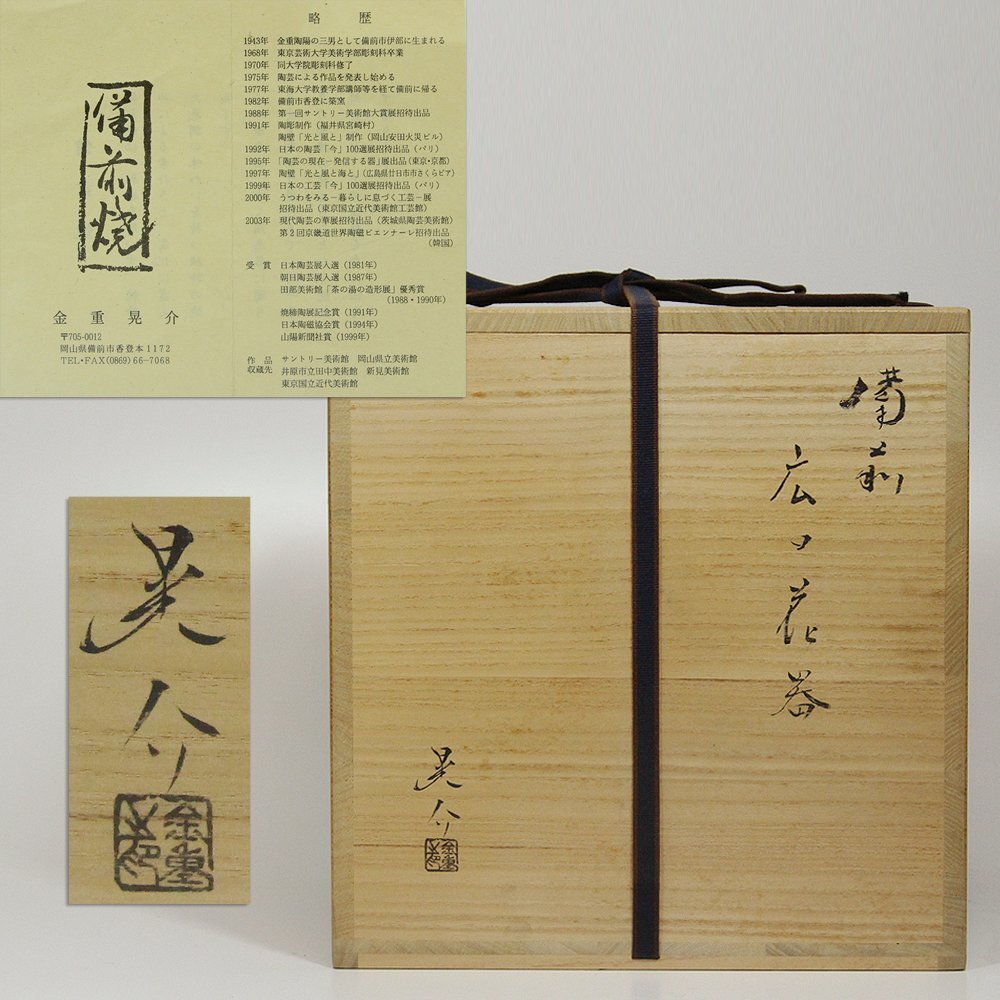 備前焼
金重晃介
〒705-0012
岡山県備前市香登本1172
TEL・FAX(0869)66-7068
略歴
1943年 金重陶陽の三男として備前市伊部に生まれる
1968年 東京芸術大学美術学部彫刻科卒業
1970年 同大学院彫刻科修了
1975年 陶芸による作品を発表し始める
1977年 東海大学教養学部講師等を経て備前に帰る
1982年 備前市香登に築窯
1988年 第一回サントリー美術館大賞展招待出品
1991年 陶彫制作(福井県宮崎村)
陶壁「光と風と」制作(岡山安田火災ビル)
1992年 日本の陶芸「今」100選展招待出品(パリ)
1995年 「陶芸の現在−発信する器」展出品(東京・京都)
1997年 陶壁「光と風と海と」(広島県廿日市市さくらピア)
1999年 日本の工芸「今」100選展招待出品(パリ)
2000年 うつわをみる−暮らしに息づく工芸−展
招待出品(東京国立近代美術館工芸館)
2003年 現代陶芸の華展招待出品(茨城県陶芸美術館)
第2回京畿道世界陶磁ビエンナーレ招待出品
(韓国)
受賞 日本陶芸展入選(1981年)
朝日陶芸展入選(1987年)
田部美術館「茶の湯の造形展」優秀賞
(1988・1990年)
焼締陶展記念賞(1991年)
日本陶磁協会賞(1994年)
山陽新聞社賞(1999年)
作品収蔵先 サントリー美術館 岡山県立美術館
井原市立田中美術館 新見美術館
東京国立近代美術館
備前
広口花器
晃介
金重
晃介
金重